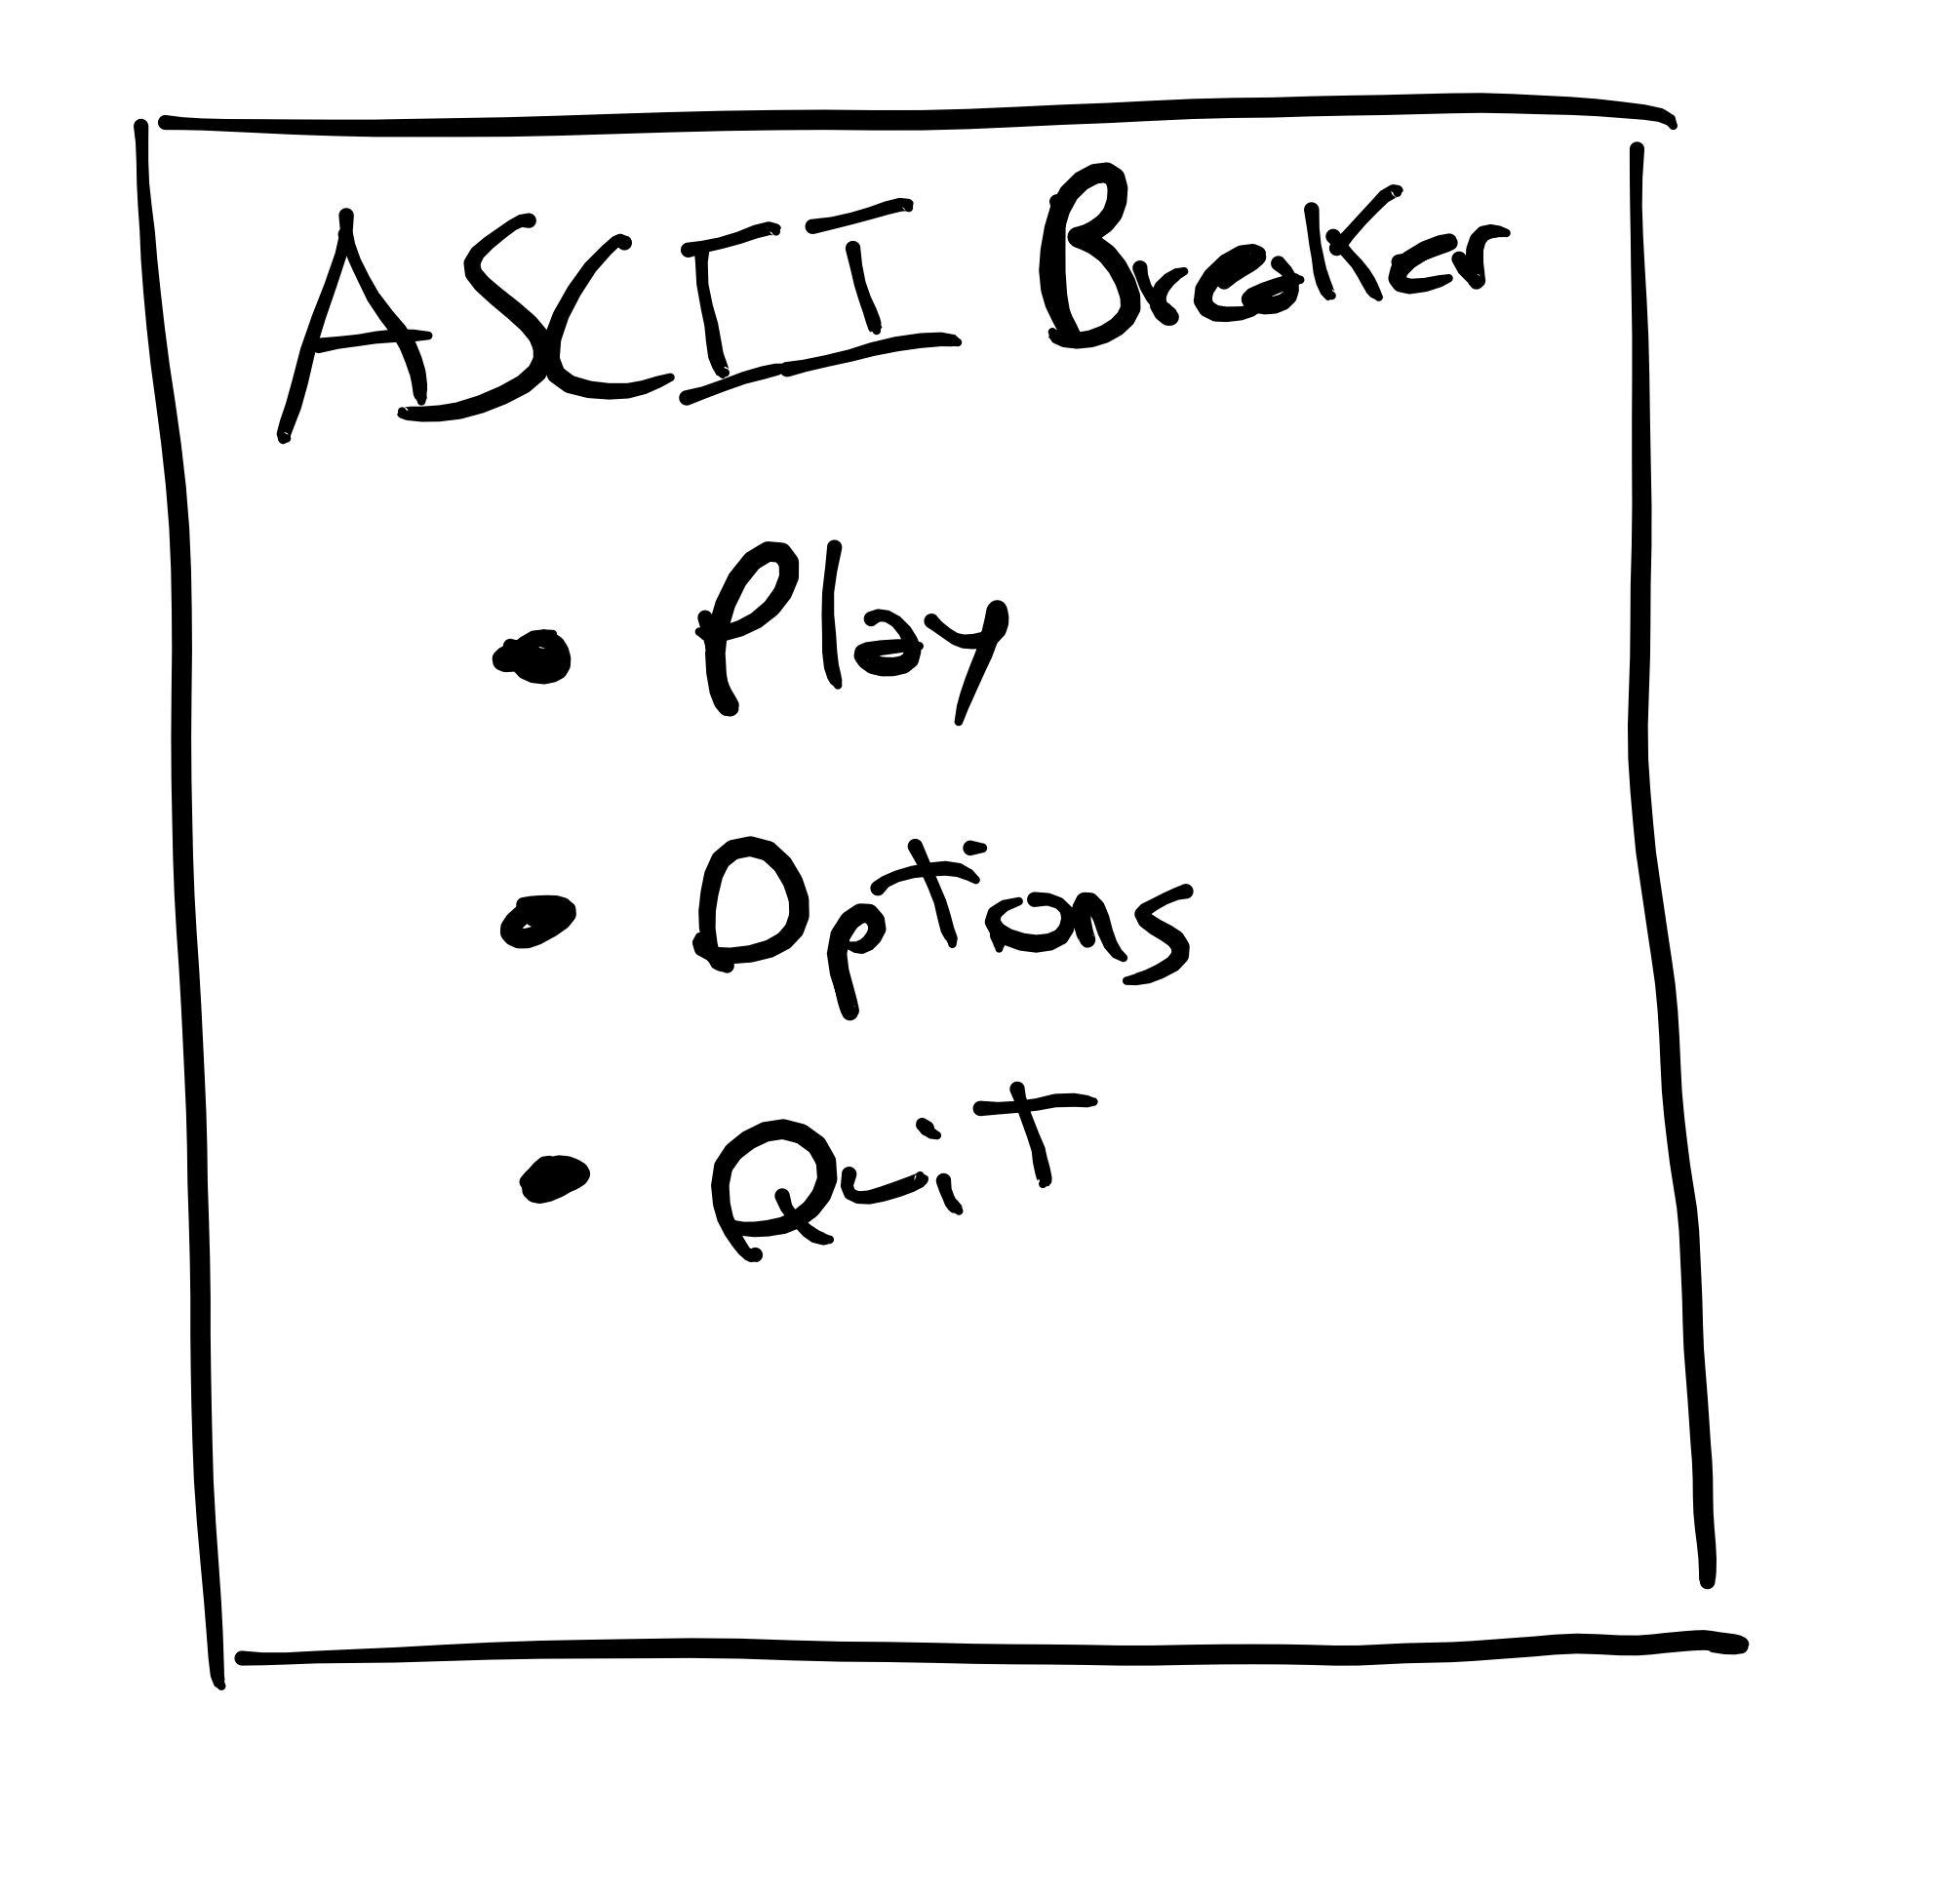 ASCII Breaker
• Play
• Options
• Quit